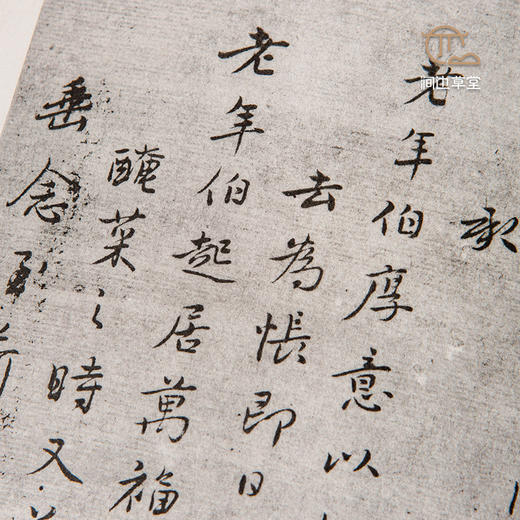 承
老年伯厚意以
去為悵即日
老年伯起居萬福
醃菜之時又
垂念
草堂